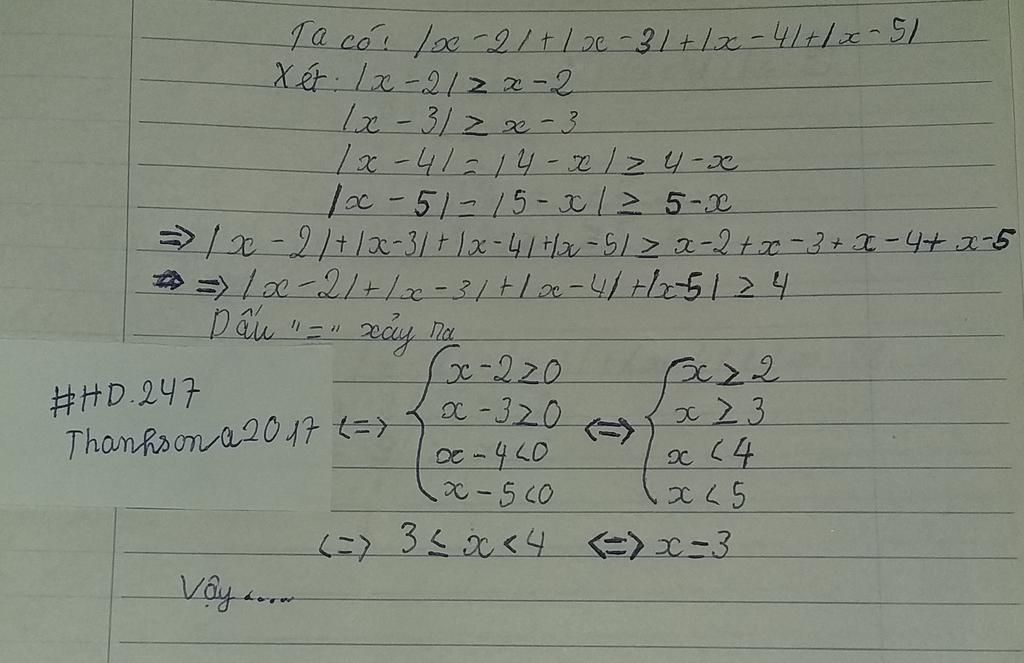 Ta có: |x - 2| + |x - 3| + |x - 4| + |x - 5|
Xét: |x - 2| ≥ x - 2
|x - 3| ≥ x - 3
|x - 4| = |4 - x| ≥ 4 - x
|x - 5| = |5 - x| ≥ 5 - x
=> |x - 2| + |x - 3| + |x - 4| + |x - 5| ≥ x - 2 + x - 3 + x - 4 + x - 5
=> |x - 2| + |x - 3| + |x - 4| + |x - 5| ≥ 4
Dấu "=" xảy ra
#HD.247
Thanhsona2017
<=> { x - 2 ≥ 0 <=> { x ≥ 2
x - 3 ≥ 0 x ≥ 3
x - 4 < 0 x < 4
x - 5 < 0 x < 5
<=> 3 ≤ x < 4 <=> x = 3
Vậy.....